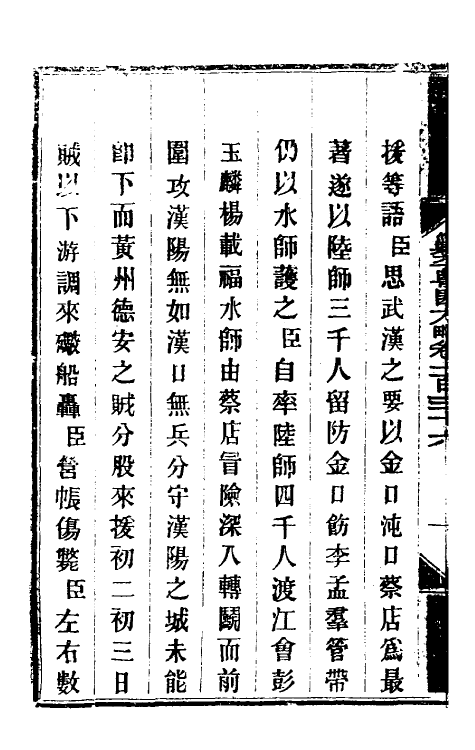 援等語臣思武漢之要以金口沌口蔡店爲最
著遂以陸師三千人留防金口飭李孟羣管帶
仍以水師護之臣自率陸師四千人渡江會彭
玉麟楊載福水師由蔡店冒險深入轉鬬而前
圍攻漢陽無如漢口無兵分守漢陽之城未能
卽下而黃州德安之賊分股來援初二初三日
賊以下游調來礮船轟臣營帳傷斃臣左右數